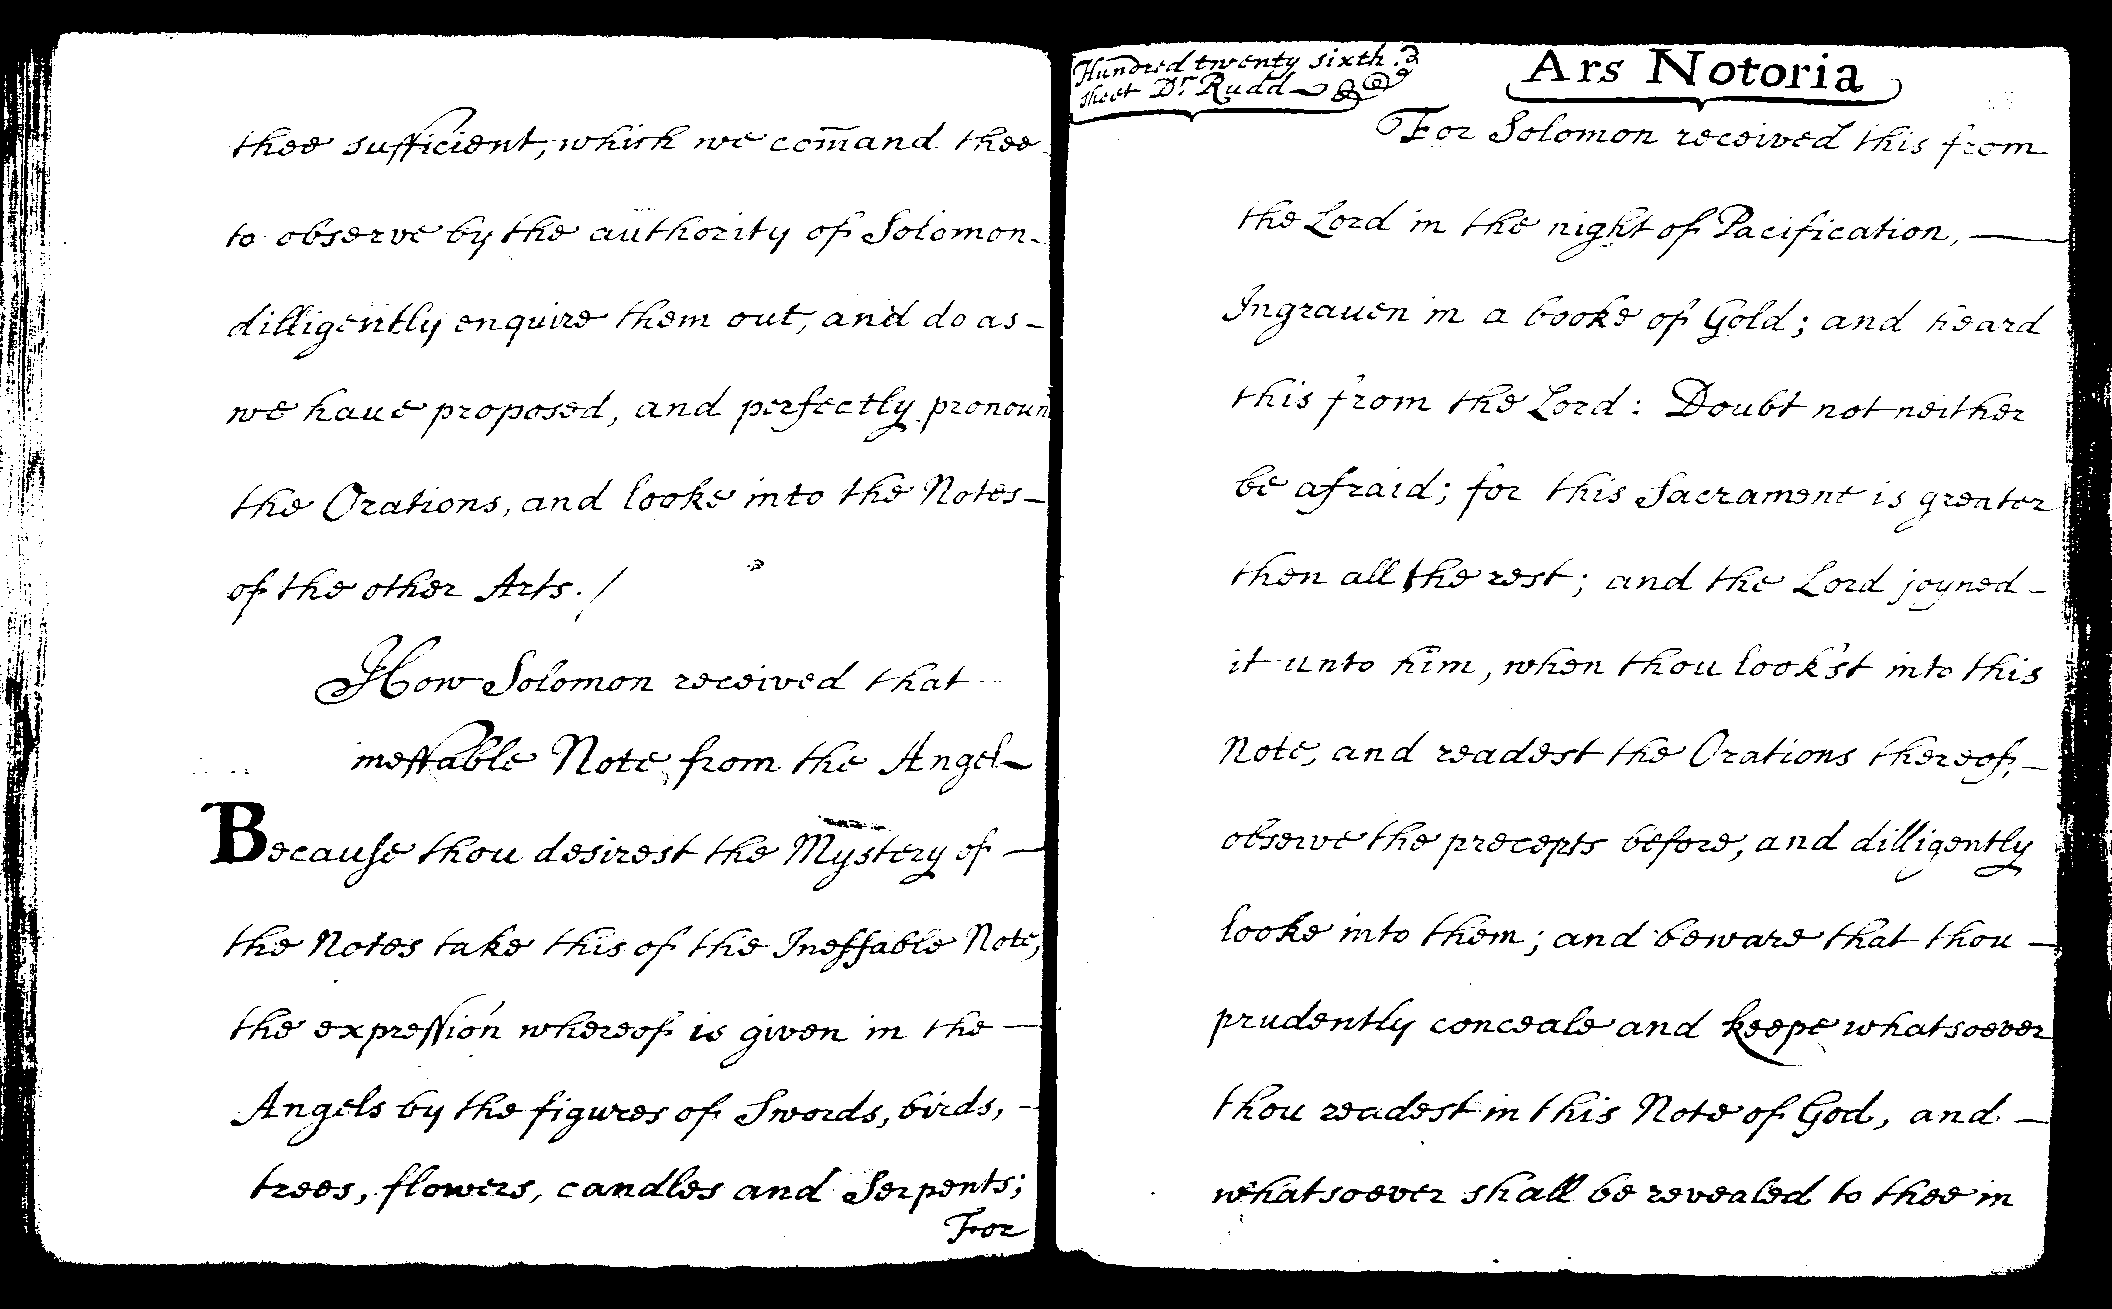 thee sufficient, which we com̄and thee
to observe by the authority of Solomon -
dilligently enquire them out, and do as -
we haue proposed, and perfectly pronoun
the Orations, and looke into the Notes -
of the other Arts. /
How Solomon received that
ineffable Note from the Angel -
Because thou desirest the Mystery of —
the Notes take this of the Ineffable Note,
the expression whereof is given in the —
Angels by the figures of Swords, birds, -
trees, flowers, candles and Serpents;
For
Hundred twenty sixth
sheet Dr Rudd
Ars Notoria
For Solomon received this from
the Lord in the night of Pacification, —
Ingrauen in a booke of Gold; and heard
this from the Lord: Doubt not neither
be afraid; for this Sacrament is greater
then all the rest; and the Lord joyned -
it unto him, when thou look'st into this
Note, and readest the Orations thereof, -
observe the precepts before, and dilligently
looke into them; and beware that thou —
prudently conceale and keepe whatsoever
thou readest in this Note of God, and —
whatsoever shall be revealed to thee in